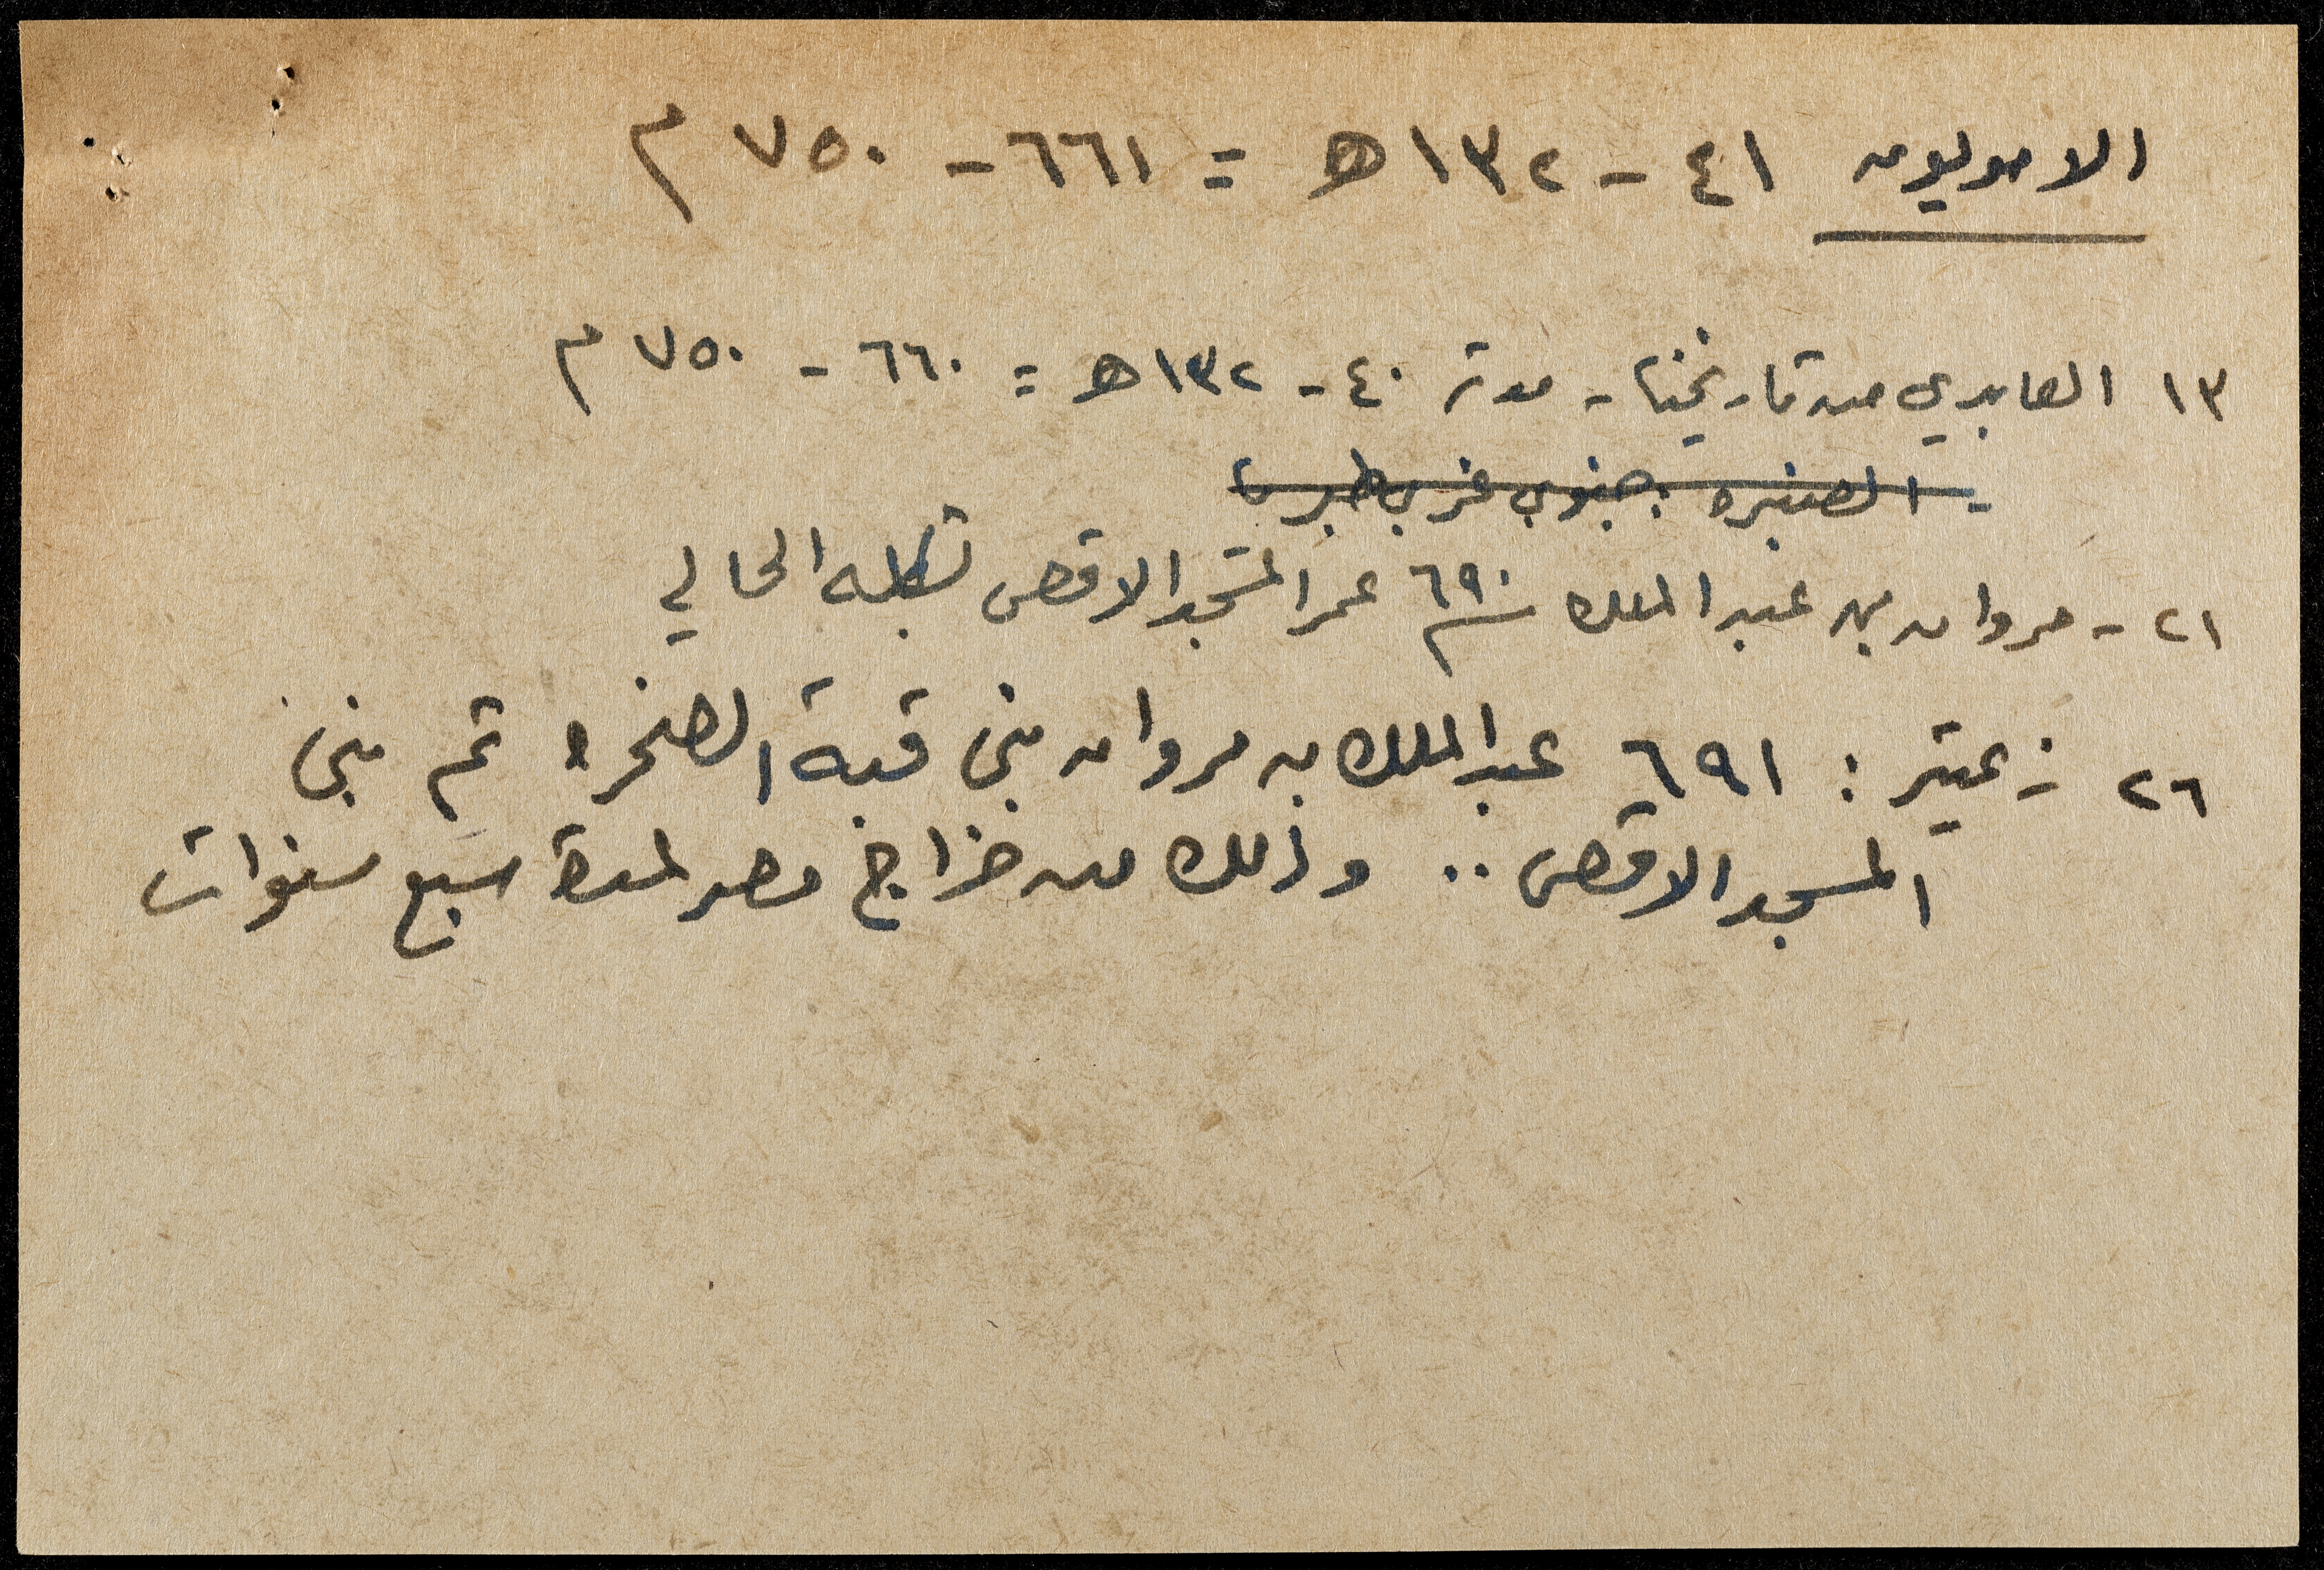 الامويون ٤١ - ١٣٢ هـ = ٦٦١ - ٧٥٠ م
١٣ العابدي من تاريخنا - مدته ٤٠ - ١٣٢ هـ = ٦٦٠ - ٧٥٠ م
- الصنبره : جنوبي غربي طبريا
٢١ - مروان بن عبد الملك ٦٩٠ م عمر المسجد الاقصى بشكله الحالي
٢٦ زعيتر : ٦٩١ عبد الملك بن مروان بنى قبة الصخرة ثم بنى
المسجد الاقصى .. وذلك من خراج مصر لمدة سبع سنوات